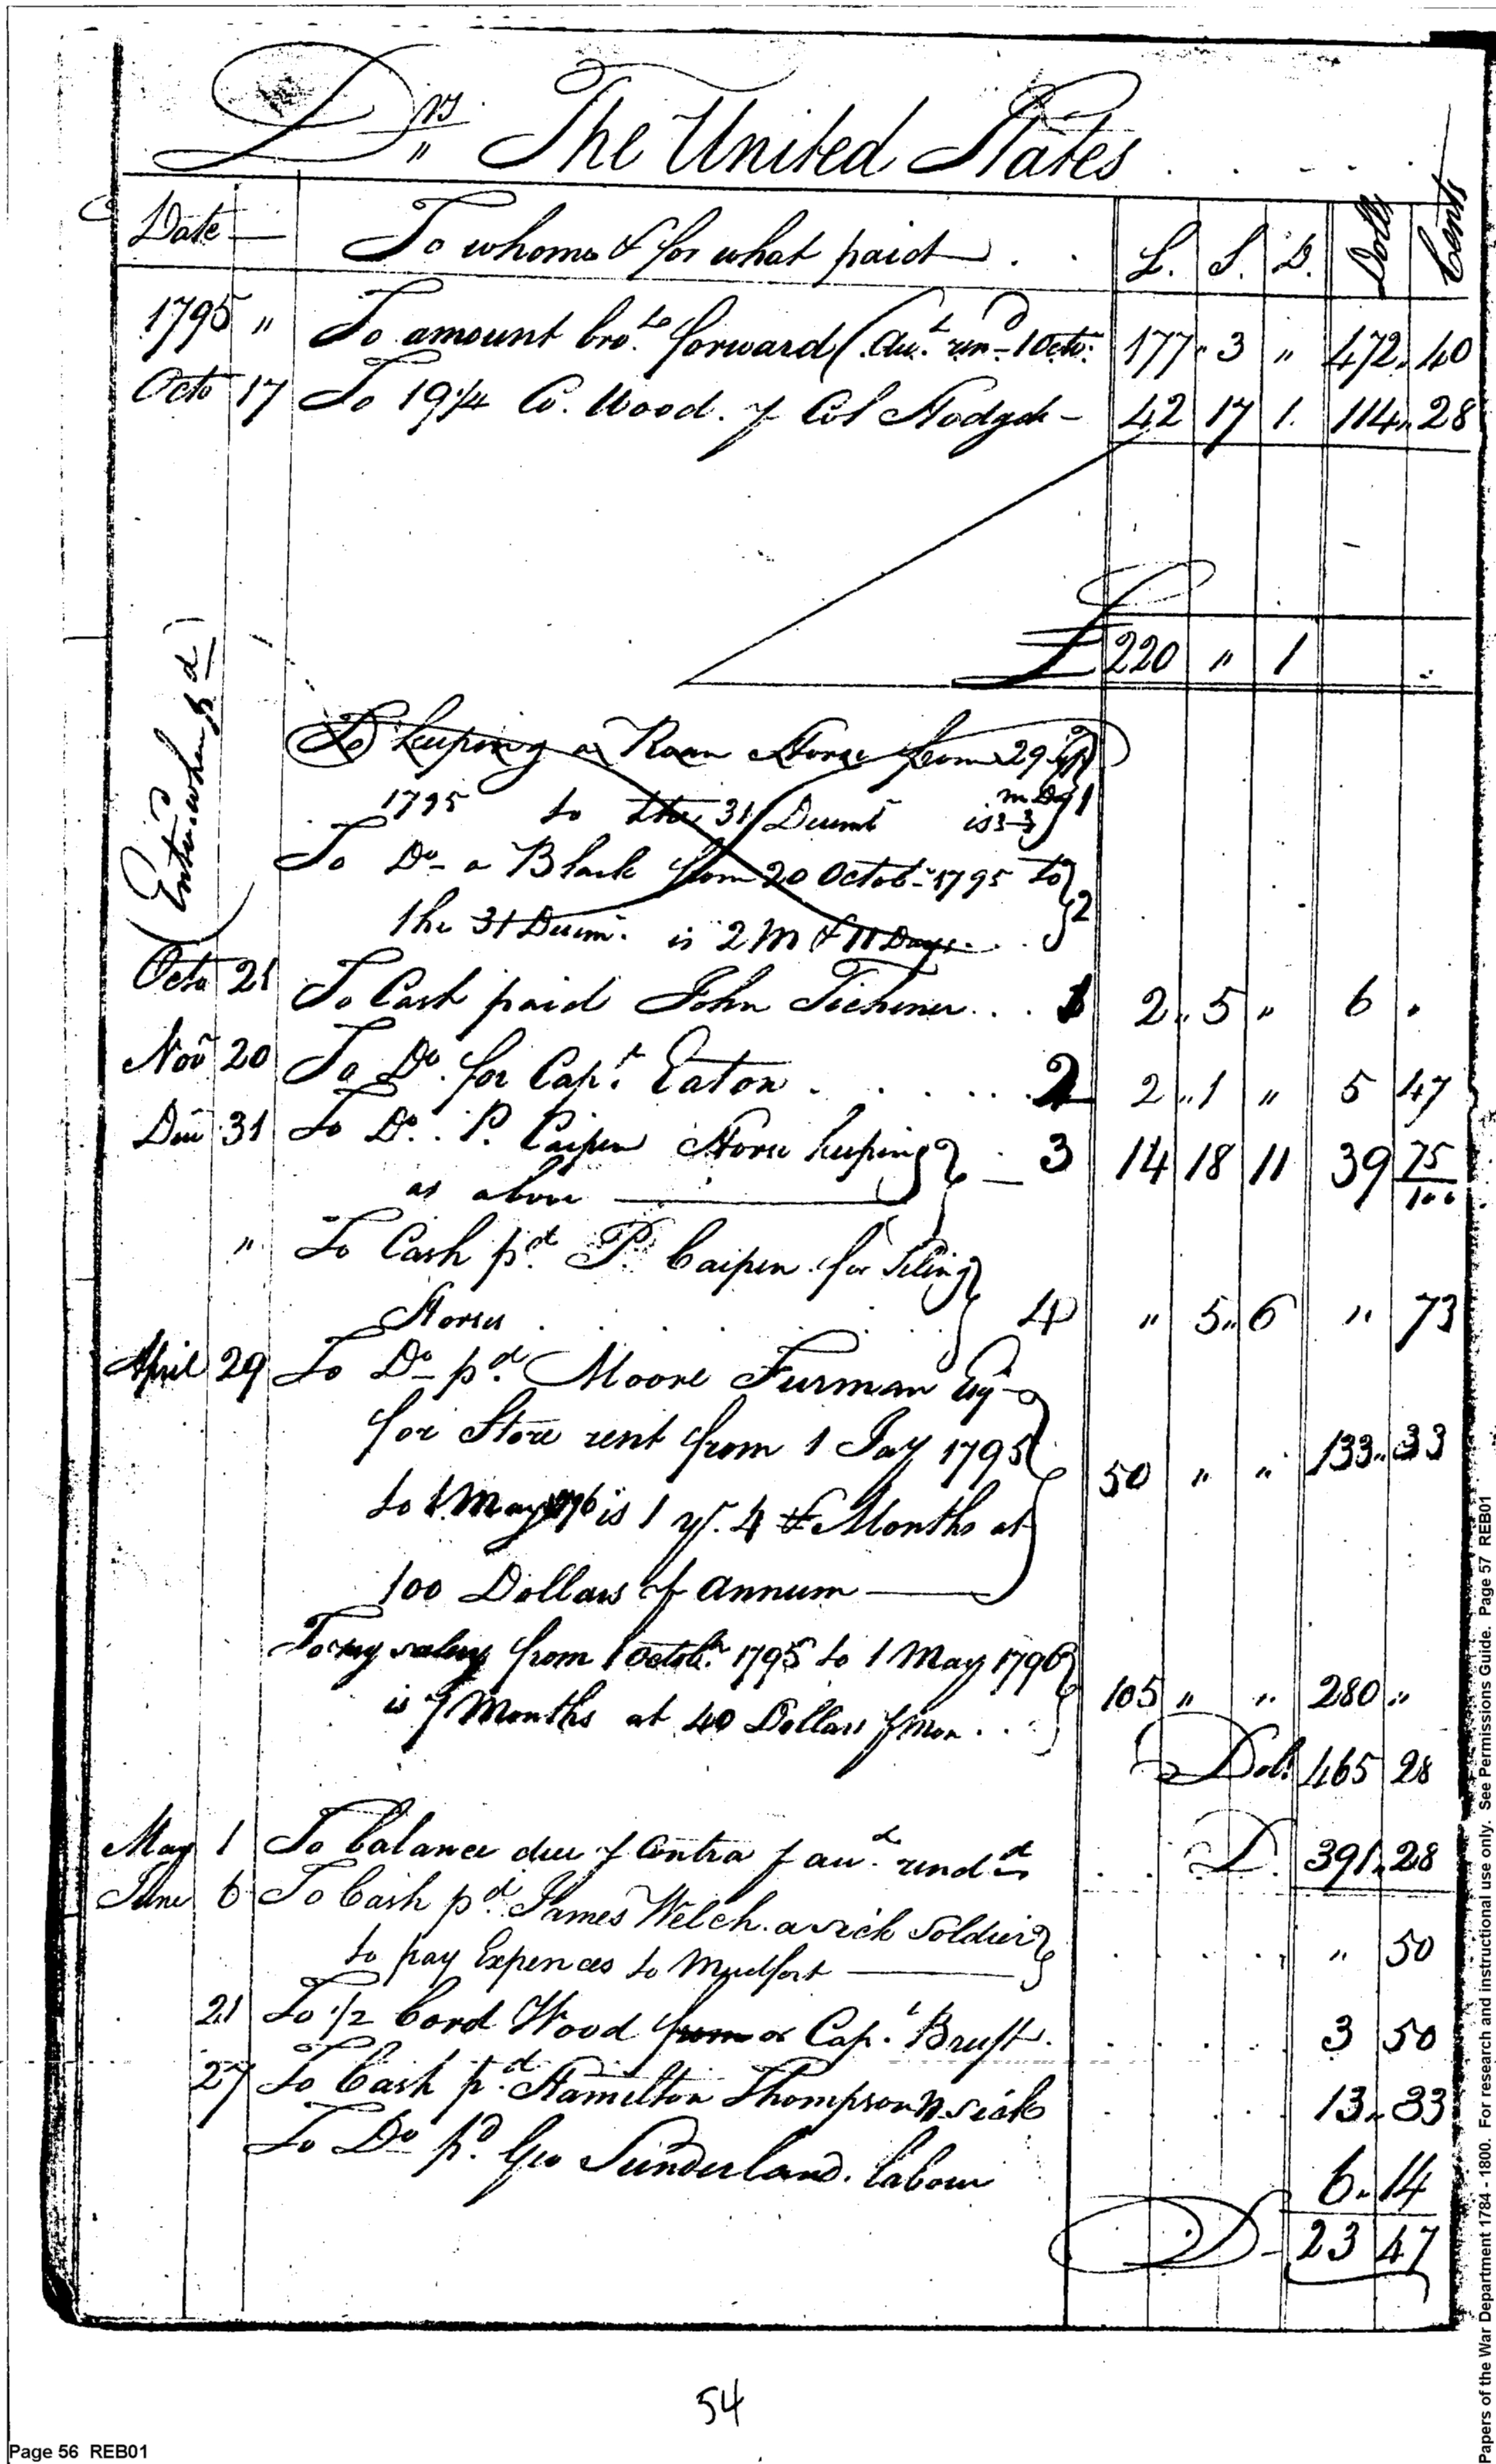 Drs The United States
Date To whom & for what paid L. S. D. Dolls Cents
1795 " To amount brot. forward (Aut. rend 1 Octo: 177 " 3 " 472 " 40
Octo 17 To 19 1/4 Co. Wood. Col Hodgdn 42 17 1. 114 " 28
£ 220 " 1
(Entered when pd)
To keeping a Roan Horse from 29
1795 to the 31 Decemr is 3 m 3 Dys } 1
To Do a Black from 20 Octob 1795 to
the 31 Decem. is 2 M & 11 Days } 2
Octo 21 To Cash paid John Tichener . . . 1 2 " 5 " 6 "
Nov 20 To Do. for Capt. Eaton . . . . 2 2 " 1 " 5 47
Dec 31 To Do. P. Caipen Horse keeping } 3 14 18 11 39 75/100
as above
" To Cash pd. P. Caipen for
Horses . . . . } 4 " 5 " 6 " 73
April 29 To Do pd. Moore Furman Esqr
for Store rent from 1 Jay 1795 50 " " 133 " 33
to 1 May 1796 is 1 yr. 4 Months at
100 Dollars annum
To my salary from 1 Octobr. 1795 to 1 May 1796 } 105 " " 280 "
is 7 Months at 40 Dollars Mon . . .
Dols 465 28
May 1 To balance due Contra aut. rendd . . D. 391 " 28
June 6 To Cash pd. James Welch. a sick Soldier
to pay Expences to . . . . . " 50
21 To 1/2 Cord Wood from or Capt. Bruff . . . . 3 50
27 To Cash pd. Hamilton Thompson sick . . . . 13 " 33
To Do pd. Geo Sunderland. labour 6 " 14
D 23 47
54
Page 56 REB01
Papers of the War Department 1784 - 1800. For research and instructional use only. See Permissions Guide. Page 57 REB01